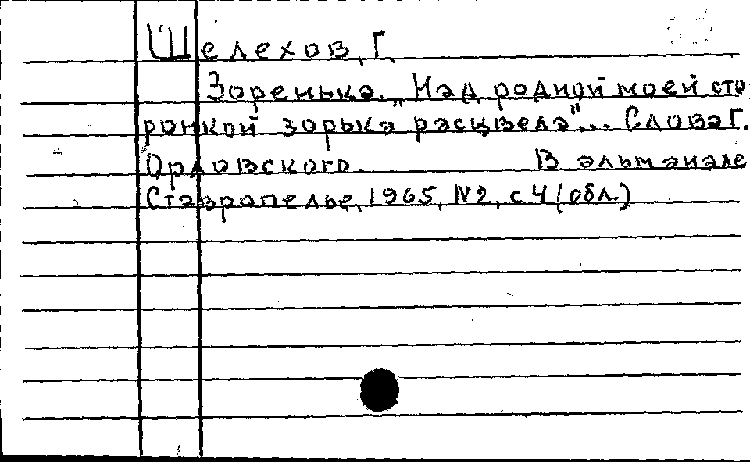 Шелехов, Г.
Зоренька. „Над родной моей сто
ронкой зорька расцвела"... Слова Г.
Орловского. В альманахе
Ставрополье, 1965, №2, с 4 (обл.)